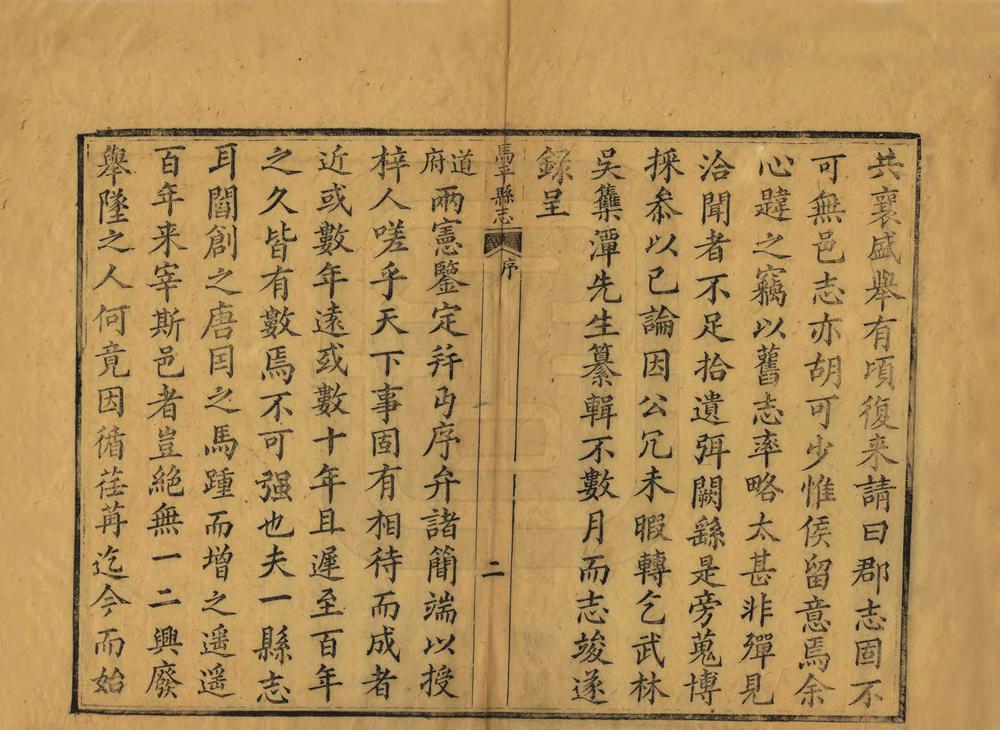 共襄盛舉有頃復来請曰郡志固不
可無邑志亦胡可少惟侯留意焉余
心韙之竊以舊志率略太甚非殫見
洽聞者不足拾遺弭闕繇是旁蒐博
採叅以已論因公冗未暇轉乞武林
吳集潭先生纂輯不數月而志竣遂
錄呈
馬平縣志
序
二
道府兩憲鑒定并丐序弁諸簡端以授
梓人嗟乎天下事固有相待而成者
近或數年遠或數十年且遲至百年
之久皆有數焉不可强也夫一縣志
耳閻創之唐因之馬踵而增之遥遥
百年来宰斯邑者豈絕無一二興廢
舉墜之人何竟因循荏苒迄今而始